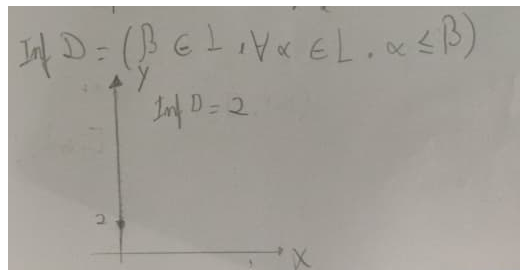 Inf D = (β ∈ L , ∀ α ∈ L . α ≤ β)
y
Inf D = 2
2
X